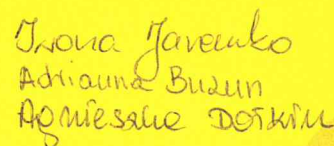 Iwona Jarenko
Adrianna Buzun
Agnieszka Dotkin